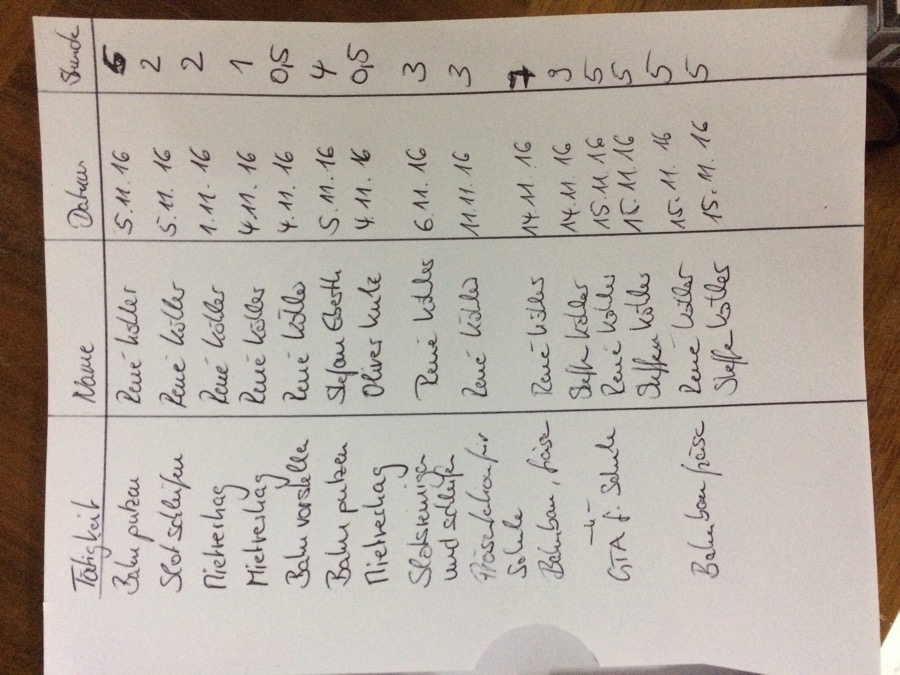 Tätigkeit Name Datum Stunde
Bahn putzen René Köller 5.11.16 6
Slot schleifen René Köller 5.11.16 2
Mietvertrag René Köller 1.11.16 2
Mietvertrag René Köller 4.11.16 1
Bahn vorstelle René Köller 4.11.16 0,5
Bahn putzen Stefan 5.11.16 4
Mietvertrag Oliver 4.11.16 0,5
Slotsreinigen René Köller 6.11.16 3
und schleifen
Präsentation für René Köller 11.11.16 3
Schule
Bahnbau, fräse René Köller 14.11.16 7
-"- Steffen Köller 14.11.16 9
GTA f. Schule René Köller 15.11.16 5
Steffen Köller 15.11.16 5
René Köller 15.11.16 5
Bahnbau fräse Steffen Köller 15.11.16 5